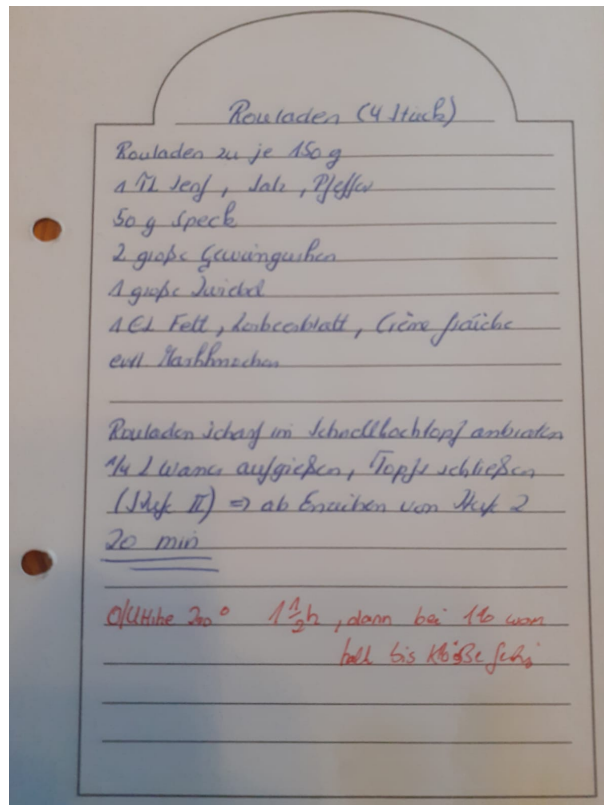 Rouladen (4 Stück)
Rouladen zu je 150 g
1 TL Senf, Salz, Pfeffer
50 g Speck
2 große Gewürzgurken
1 große Zwiebel
1 EL Fett, Lorbeerblatt, Crème fraîche
evtl. Markknochen
Rouladen scharf im Schnellkochtopf anbraten
1/4 l Wasser aufgießen, Topf schließen
(Stufe II) => ab Erreichen von Stufe 2
20 min
O/U Hitze 200° 1 1/2 h, dann bei 110 warm
bis Klöße fertig